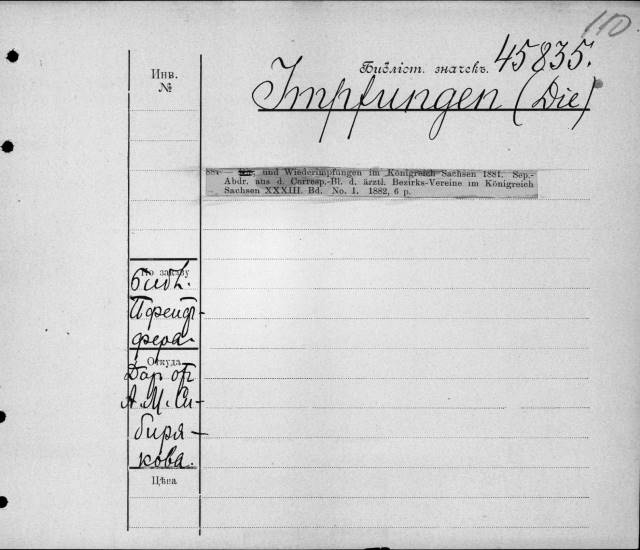 110
Библіот. значекъ. 45835.
Инв.
№
Impfungen (Die)
884 — und Wiederimpfungen im Königreich Sachsen 1881. Sep.-
Abdr. aus d. Corresp.-Bl. d. ärztl. Bezirks-Vereine im Königreich
Sachsen XXXIII. Bd. No. 1. 1882, 6 p.
По заказу
Библ.
Пфейф-
фера.
Откуда
Даръ отъ
А. М. Си-
биря-
кова.
Цѣна